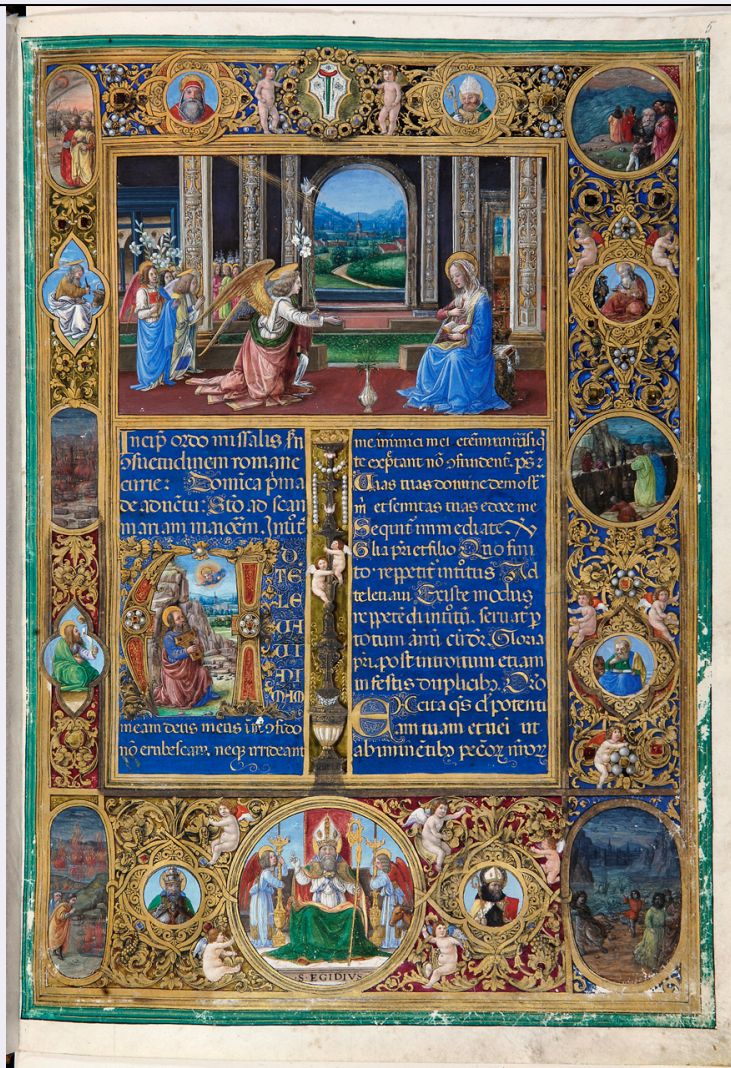 5
Incip̄ ordo missalis s̄n
ↄsuetudinem romane
curie: Domica pīma
de aduētu: Stō ad scan
mariam maiorem. Introit̄
A
D
TE
LE
VA
VI
NI
MAM
meam deus meus ī te ↄfido
nō erubescam. neq̄ irrideant
me inimici mei etenim
te exp̄tant nō ↄfundent̄. ps̄
Uias tuas domine demost̄
m̄ et semitas tuas edoce me
Sequit̄ immediate
Glia pr̄i et filio Quo fini
to reppetit̄ītroitus Ad
te leuaui Et iste modus
reppetēdi ītroitū. seruat̄ p
totum ānū cū dr̄. Gloria
pr̄i. post introitum etiam
in festis duplicibꝫ. Orō
Excita qs̄ potenti
am tuam et uei ut
ab iminētibꝫ pecōꝝ nr̄oꝝ
S. EGIDIVS